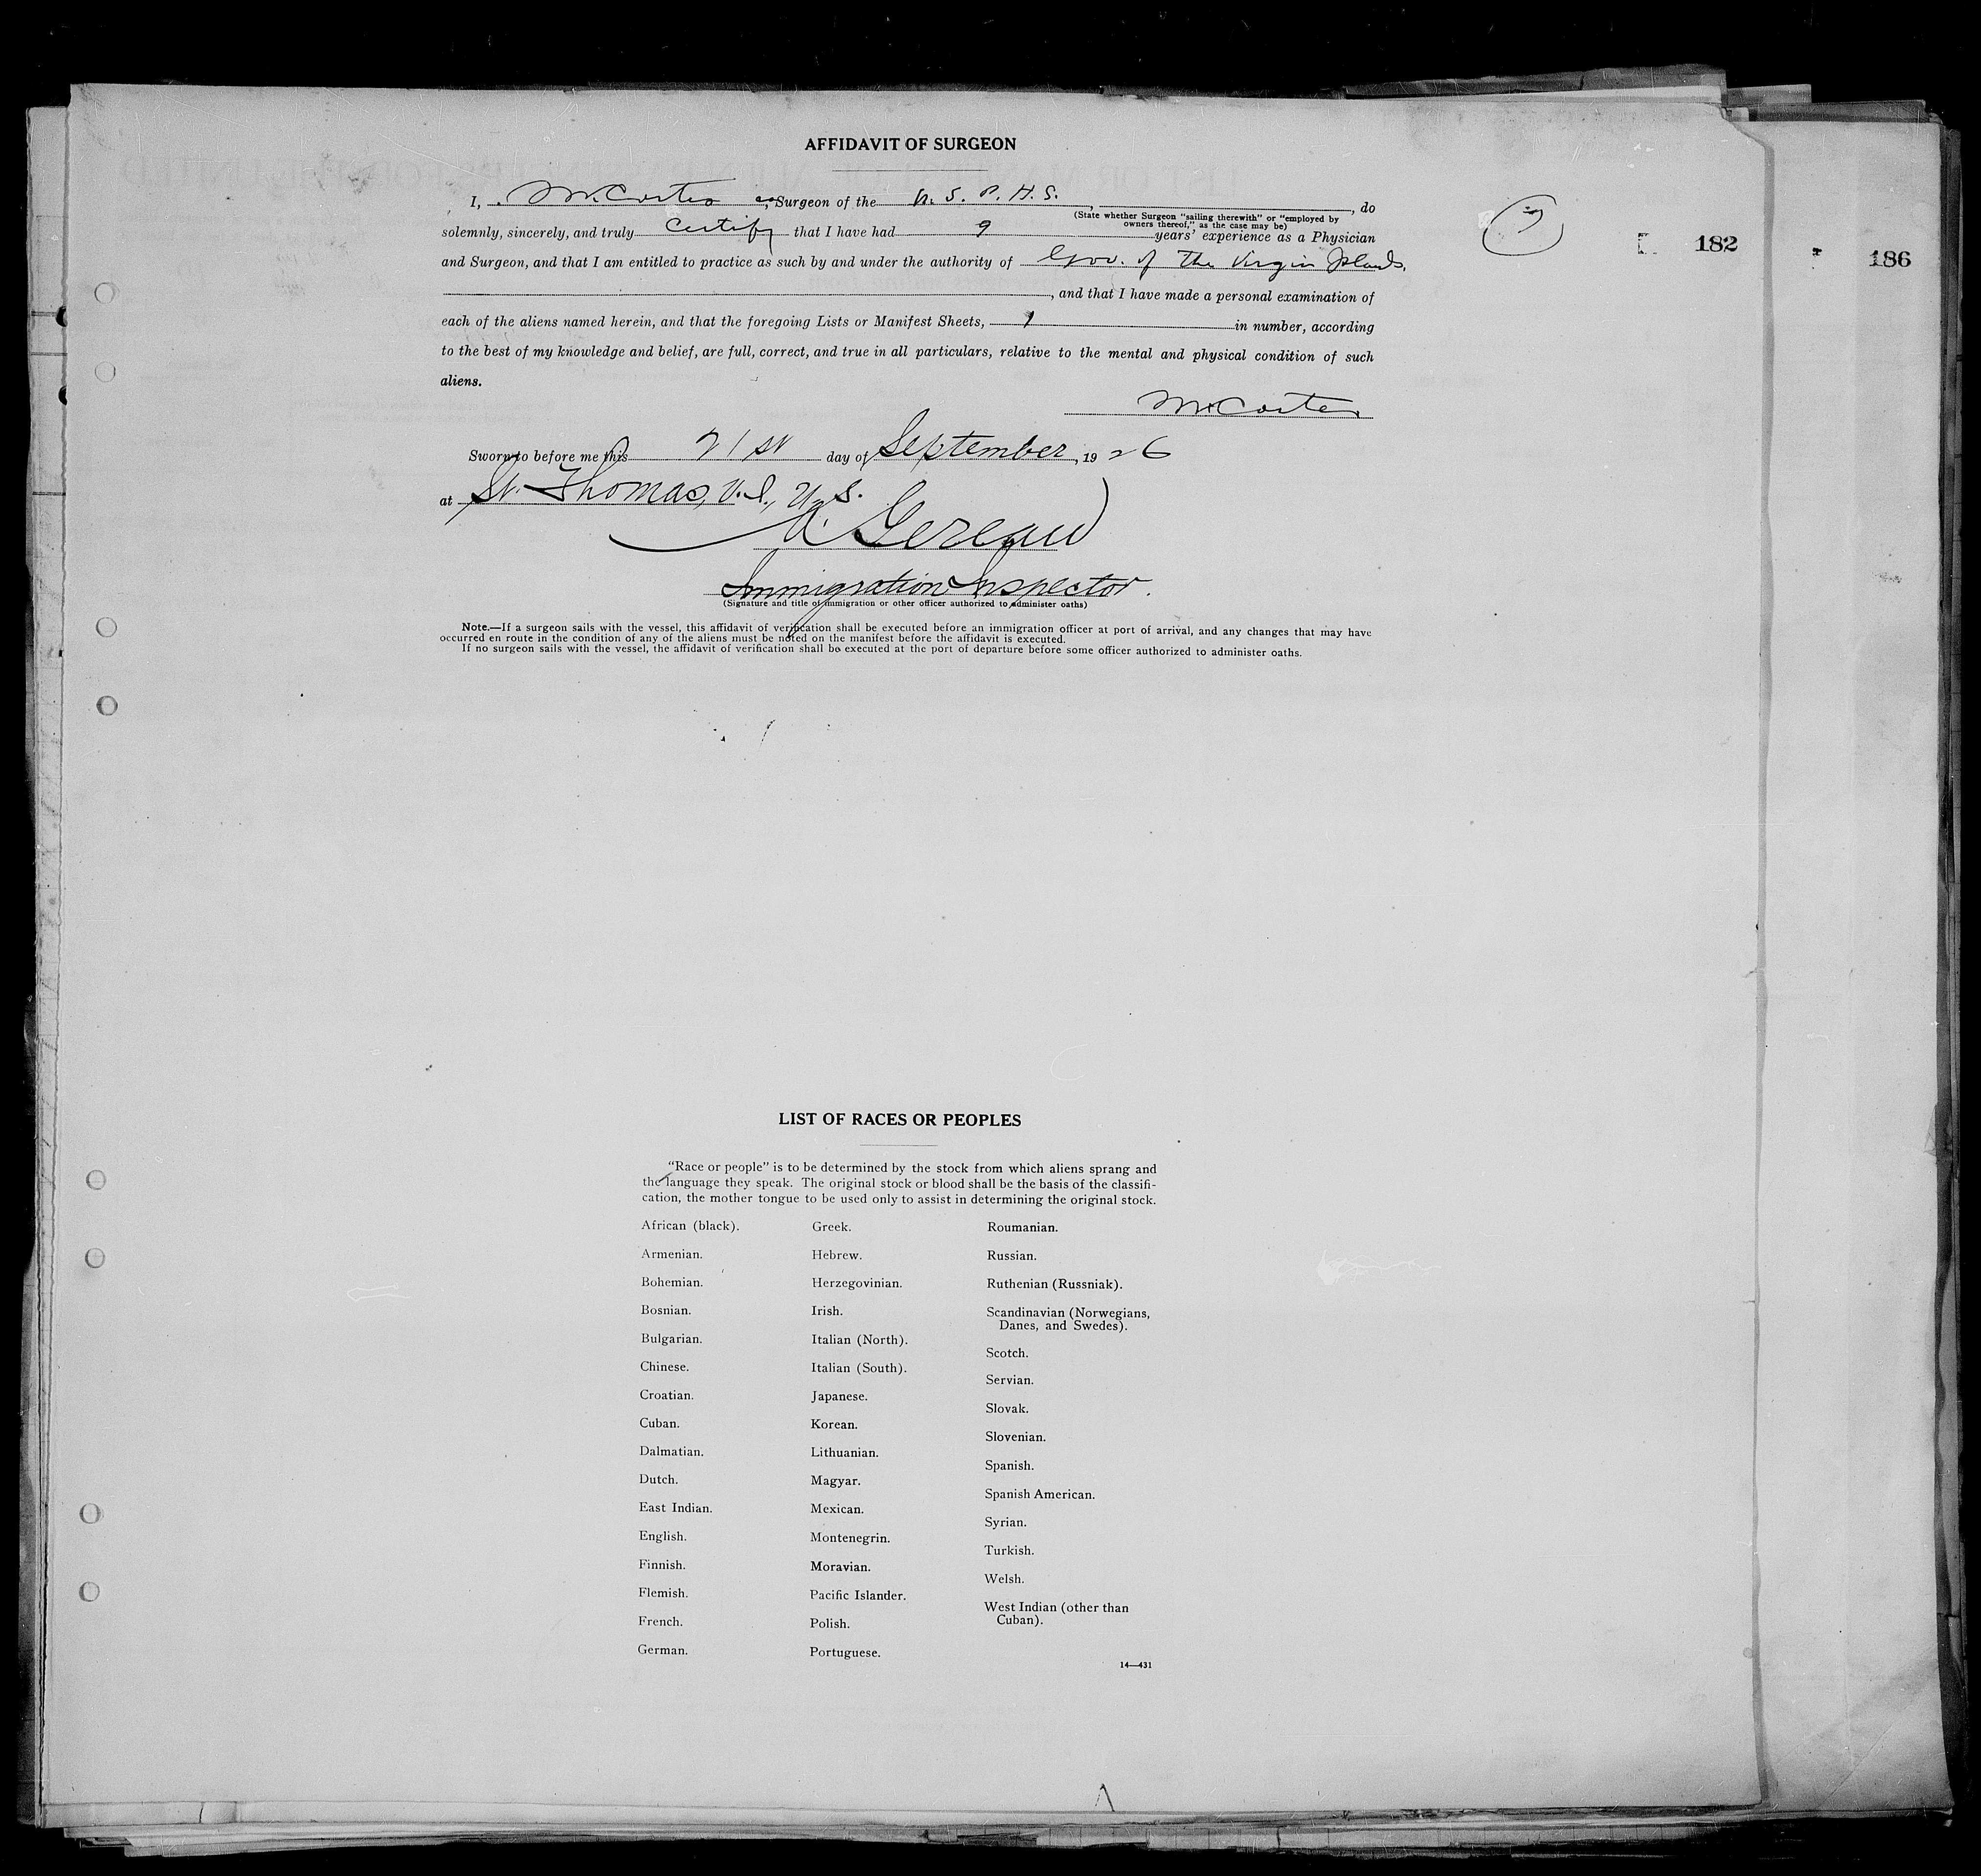 AFFIDAVIT OF SURGEON
I, McCarter, Surgeon of the U. S. P. H. S., , do
(State whether Surgeon "sailing therewith" or "employed by
owners thereof," as the case may be)
solemnly, sincerely, and truly certify that I have had 9 years' experience as a Physician
and Surgeon, and that I am entitled to practice as such by and under the authority of Gov. of the Virgin Islands.
, and that I have made a personal examination of
each of the aliens named herein, and that the foregoing Lists or Manifest Sheets, 1 in number, according
to the best of my knowledge and belief, are full, correct, and true in all particulars, relative to the mental and physical condition of such
aliens.
182
186
Sworn to before me this 21st day of September, 1926
at St. Thomas, V.I., U.S.
Gereau
Immigration Inspector.
(Signature and title of immigration or other officer authorized to administer oaths)
Note.—If a surgeon sails with the vessel, this affidavit of verification shall be executed before an immigration officer at port of arrival, and any changes that may have
occurred en route in the condition of any of the aliens must be noted on the manifest before the affidavit is executed.
If no surgeon sails with the vessel, the affidavit of verification shall be executed at the port of departure before some officer authorized to administer oaths.
LIST OF RACES OR PEOPLES
"Race or people" is to be determined by the stock from which aliens sprang and
the language they speak. The original stock or blood shall be the basis of the classifi-
cation, the mother tongue to be used only to assist in determining the original stock.
African (black).
Armenian.
Bohemian.
Bosnian.
Bulgarian.
Chinese.
Croatian.
Cuban.
Dalmatian.
Dutch.
East Indian.
English.
Finnish.
Flemish.
French.
German.
Greek.
Hebrew.
Herzegovinian.
Irish.
Italian (North).
Italian (South).
Japanese.
Korean.
Lithuanian.
Magyar.
Mexican.
Montenegrin.
Moravian.
Pacific Islander.
Polish.
Portuguese.
Roumanian.
Russian.
Ruthenian (Russniak).
Scandinavian (Norwegians,
Danes, and Swedes).
Scotch.
Servian.
Slovak.
Slovenian.
Spanish.
Spanish American.
Syrian.
Turkish.
Welsh.
West Indian (other than
Cuban).
14—431